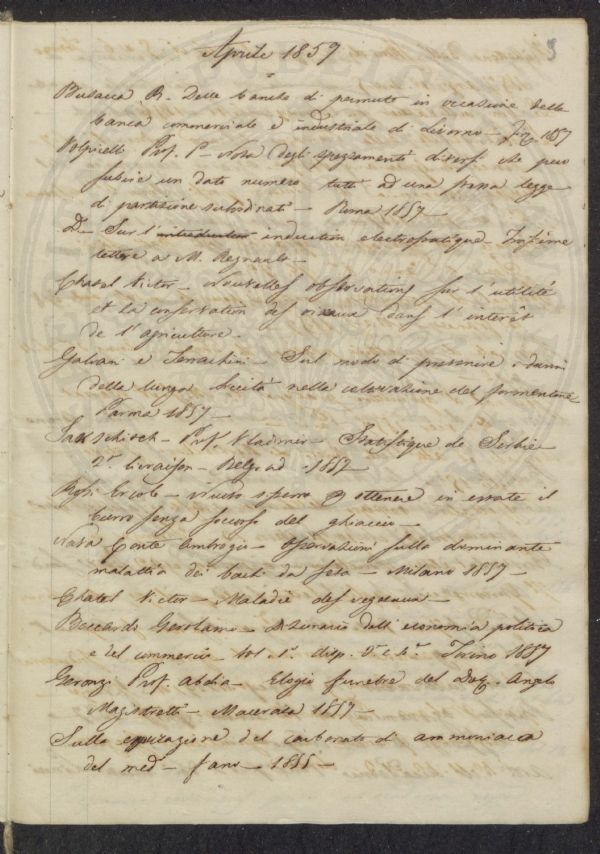 3
Aprile 1859
Busacca R. Delle banche di permuto in occasione della
banca commerciale e industriale di Livorno - Fir. 1857
Volpicelli Prof. P - Nota degli spezzamenti diversi che può
subire un dato numero tutti ad una stessa legge
di partizione subordinati - Roma 1857 -
D. - Sur l' induction electrostatique - Troisième
lettre a M. Regnault -
Chatel Victor - Nouvelles observations sur l'utilité
et la conservation des oiseaux dans l'interêt
de l'agriculture.
Galvani e - Sul modo di prevenire i danni
della lunga siccità nella coltivazione del formentone
Parma 1857 -
Prof. Vladimir - Statistique de Serbie
2e livraison - Belgrad - 1857
Ercole - Nuovo sistema p ottenere in estate il
burro senza soccorso del ghiaccio -
Nava Conte Ambrogio - Osservazioni sulla dominante
malattia dei bachi da seta - Milano 1857 -
Chatel Victor - Maladie des vegetaux -
Boccardo Gerolamo - Dizionario dell'economia politica
e del commercio - vol. 1° disp. 2a e 4a Torino 1857
Geronzi Prof. Abdia - Elogio funebre del Dot. Angelo
Magistretti - Macerata 1857 -
Sulla del carbonato di ammoniaca
del med - Fano - 1855 -